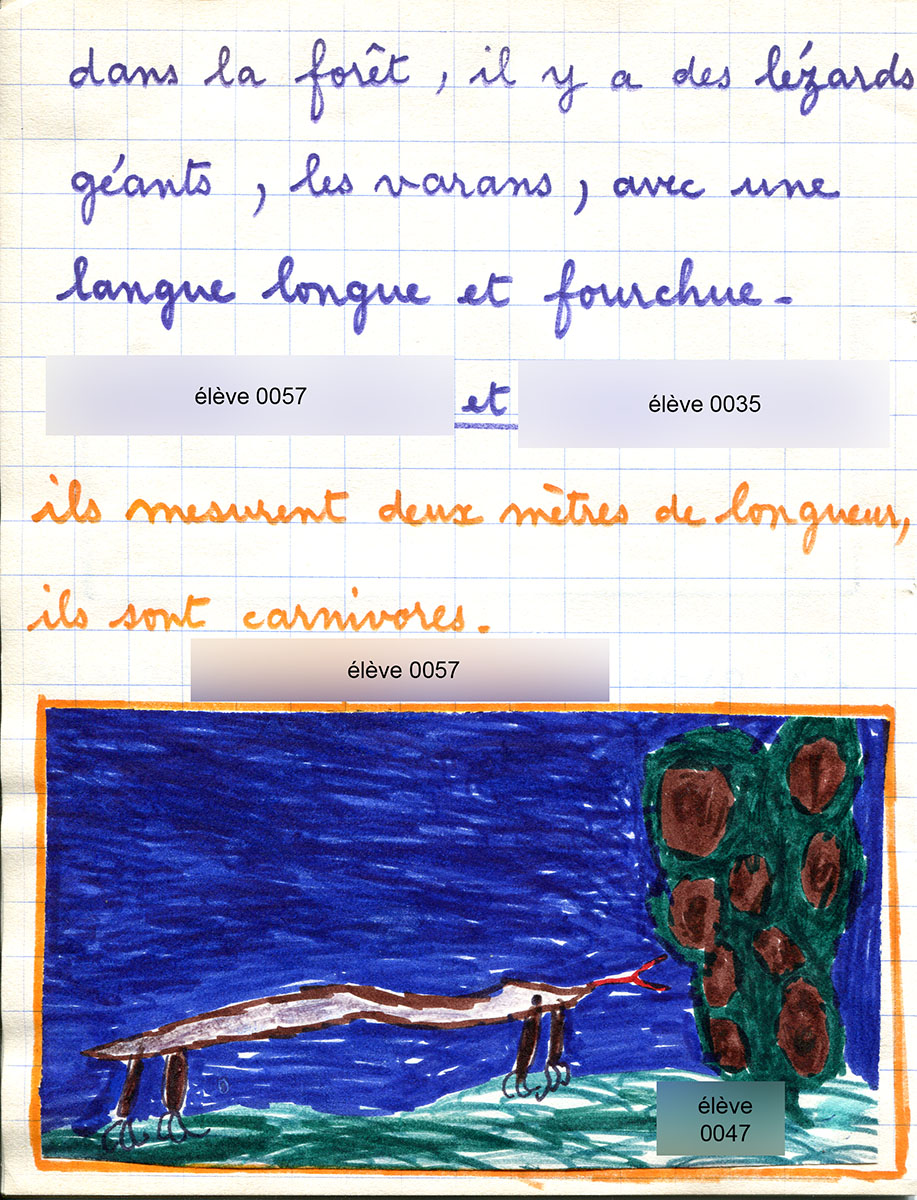 dans la forêt, il y a des lézards
géants, les varans, avec une
langue longue et fourchue.
élève 0057 et élève 0035
ils mesurent deux mètres de longueur,
ils sont carnivores.
élève 0057
élève
0047